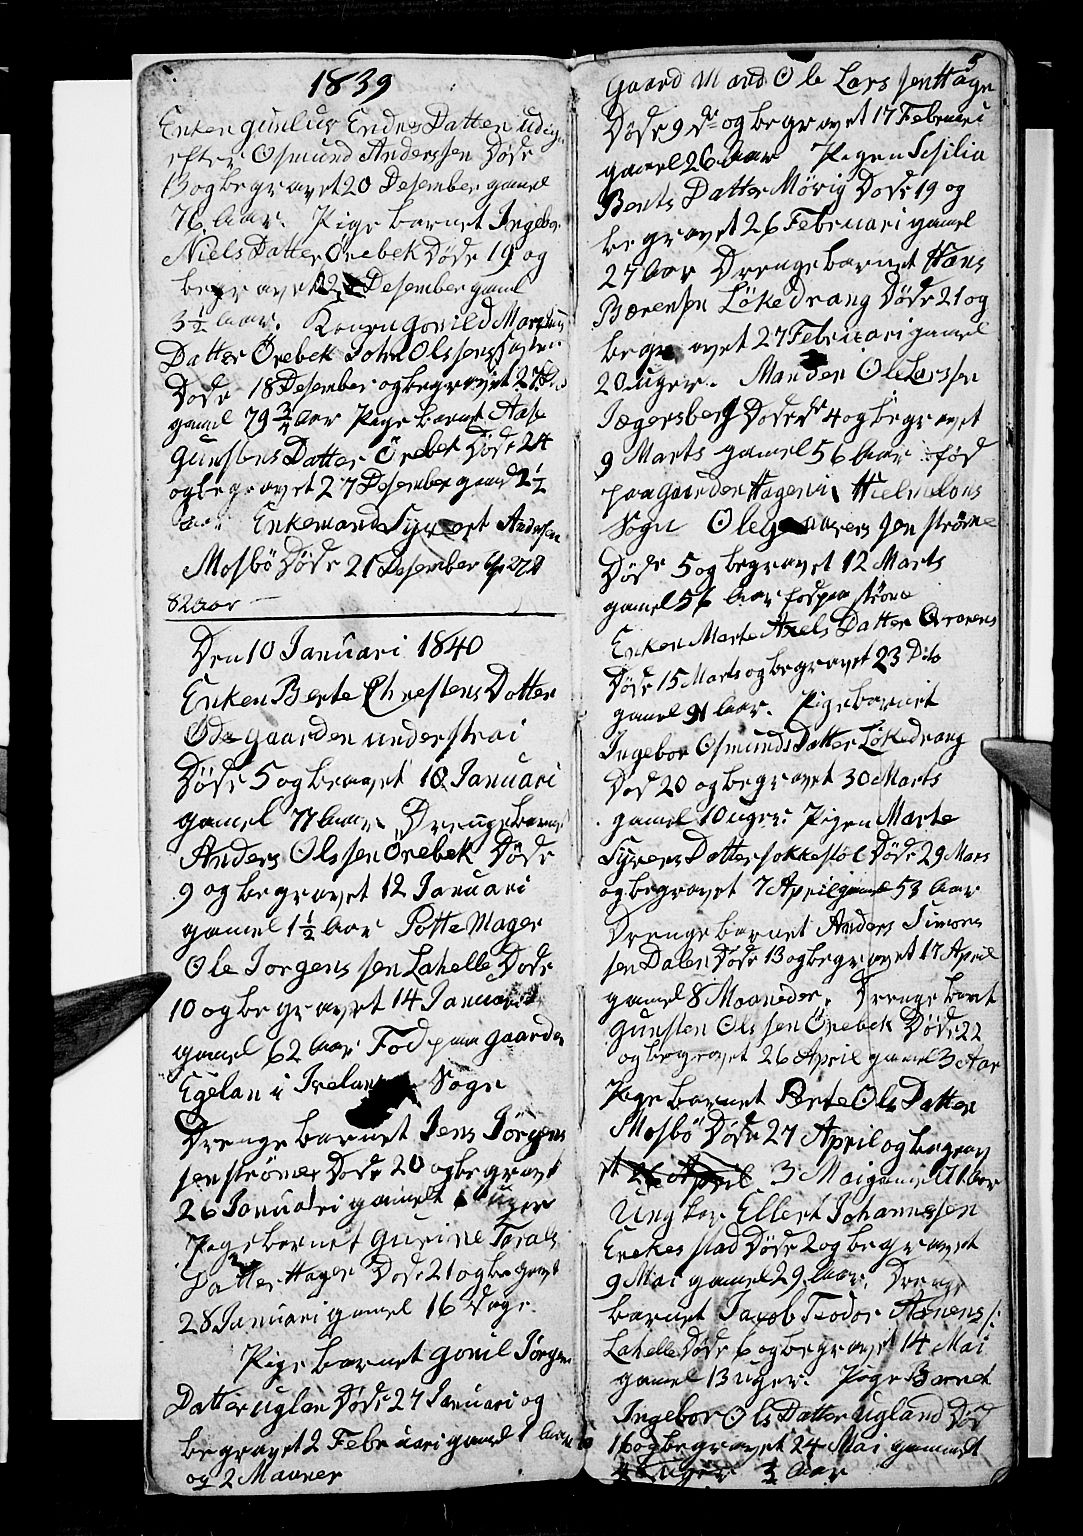 1839
Enken gunluv Endres Datter udig
efter Osmund Anderssen Døde
13 og begravet 20 Desember gamel
76 Aar. Pige barnet Ingebor
Niels Datter Örebek Døde 19 og
begravet 22 Desember gamel
3½ Aar. Konen gonild
Datter Örebek John Olssens
Døde 18 Desember og begravet 27
gamel 79¾ Aar Pige barnet Aase
Gunstens Datter Örebek Døde 24
og begravet 27 Desember gamel 2½
Aar Enkemand Syvert Andersen
Mosbö Döde 21 Desember
82 aar
Den 10 Januari 1840
Enken Berte Chrestens Datter
Ødegaarden under strai
Døde 5 og bravet 10 Januari
gamel 77 Aar. Drenge barnet
Anders Olssen Örebek Døde
9 og begravet 12 Januari
gamel 1½ Aar Potte Mager
Ole Jorgenssen Lahelle Døde
10 og begravet 14 Januari
gamel 62 Aar Fød paa gaarden
Egelan i Sogn
Drenge barnet Jens Jörgen
sen strömer Døde 20 og begravet
26 Januari gamelt uger
Pige barnet gurine Taralls
Datter Hagen Døde 21 og begravet
28 Januari gamel 16 Dage.
Pige barnet gonil Jörgen
Datter uglan Døde 27 Januari og
begravet 2 Februari gamel 1 Aar
og 2 Maaner
5
Gaard Mand Ole Larssen Hagen
Døde 9 de og begravet 17 Februari
gamel 26 Aar Pigen Sesilia
Bents Datter Mövig Døde 19 og
begravet 26 Februari gamel
27 Aar Drenge barnet Hans
Bærensen Lökedrang Døde 21 og
begravet 27 Februari gamel
20 uger. Manden Ole Larssen
Jægersberg Døde 4 og begravet
9 Marts gamel 56 Aar fød
paa gaarden Hagen i
Sogn Ole strøme
Døde 5 og begravet 12 Marts
gamel 56 Aar fød paa strøme
Enken Marte Axels Datter
Døde 15 Marts og begravet 23 Dito
gamel 91 Aar. Pige barnet
Ingebor Osmunds Datter Løkedrang
Død 20 og begravet 30 Marts
gamel 10 uger. Pigen Marte
Syvers Datter sokkestøl Døde 29 Mars
og begravet 7 April gamel 53 Aar
Drenge barnet Anders Simons
sen Dalen Døde 13 og begravet 17 April
gamel 8 Maaneder. Drenge barnet
Gunsten Olssen Örebek Døde 22
og begravet 26 April gamel 3 Aar
Pige barnet Berte Ols Datter
Mosbö Døde 27 April og begrav
et 26 April 3 Mai gamel 11 Aar
Ung kar Ellert Johannessen
Enkestad Døde 2 og begravet
9 Mai gamel 29 Aar. Drenge
barnet Jacob Teodor
Lahelle Døde 6 og begravet 14 Mai
gamel 13 uger. Pige Barnet
Ingebor Ols Datter Ugland Død
16 og begravet 24 Mai gammel
uger ¾ Aar